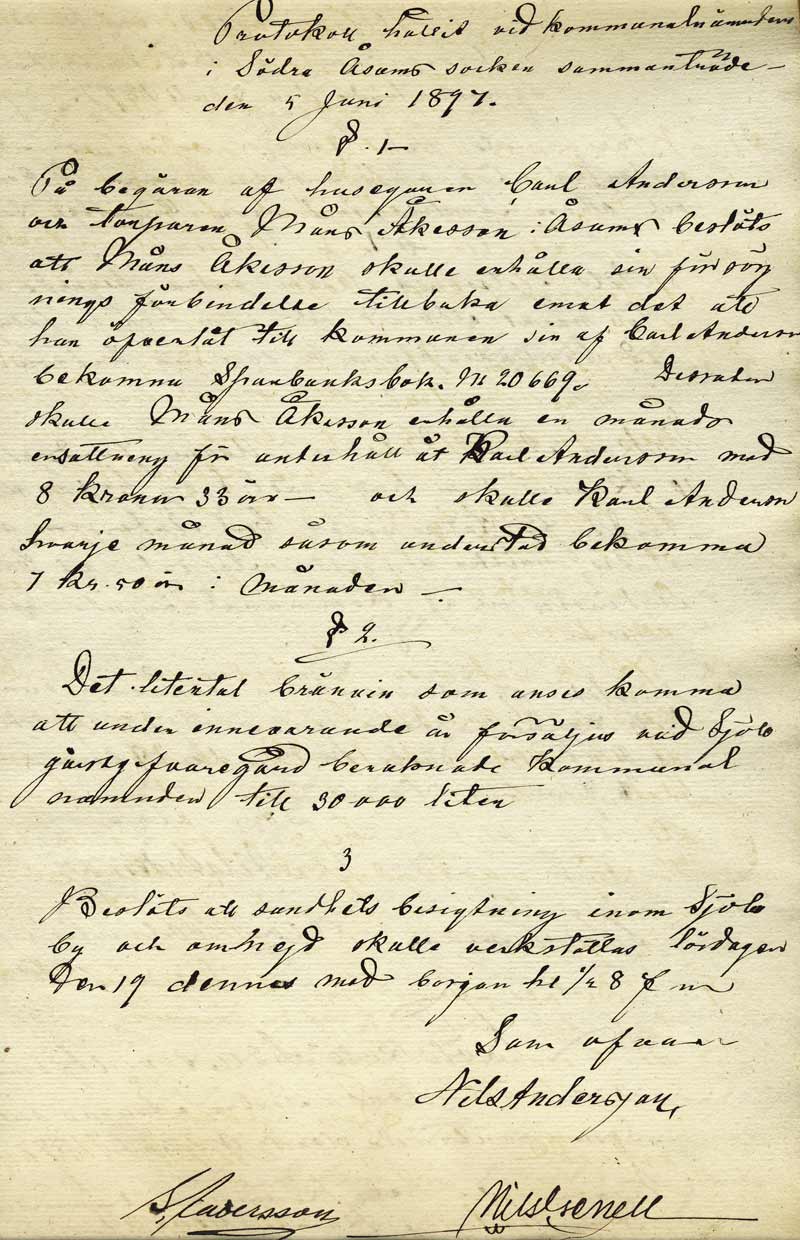 Protokoll hållit vid kommunalnämndens
i Södra Åsums socken sammanträde
den 5 Juni 1897.
§. 1
På begäran af husegaren Carl Anderson
och torparen Måns Åkesson i Åsums beslöts
att Måns Åkisson skulle erhålla sin försörj
nings förbindelse tillbaka emot det att
han öfverlåt till kommunen sin af Carl Anderson
bekomna Sparbanksbok. N 20669. Dessutom
skulle Måns Åkisson erhålla en månads
ersattning för underhåll åt Karl Anderson med
8 kronor 33 öre — och skulle Karl Anderson
hvarje månad såsom understöd bekomma
7 kr. 50 ör i månaden —
§ 2.
Det litertal brännvin som anses komma
att under innevarande år försäljas vid Sjöbo
gästgifvaregård beraknade Kommunal
namnden till 30000 liter
3
Beslöts att sundhets besigtning inom Sjöbo
by och omnejd skulle verkställas lördagen
Den 19 dennes med borjan kl 1/2 8 f m
Som ofvan
Nils Andersson
Nils